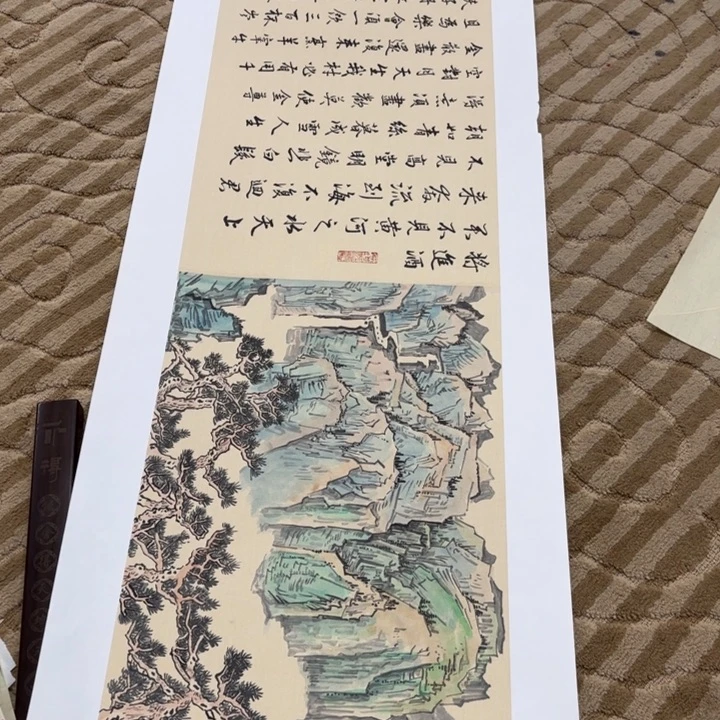 將進酒
君不見黃河之水天上
来奔流到海不復迴君
不見高堂明鏡悲白髮
朝如青絲暮成雪人生
得意須盡歡莫使金尊
空對月天生我材必有用千
金散盡還復来烹羊宰牛
且為樂會須一飲三百杯岑